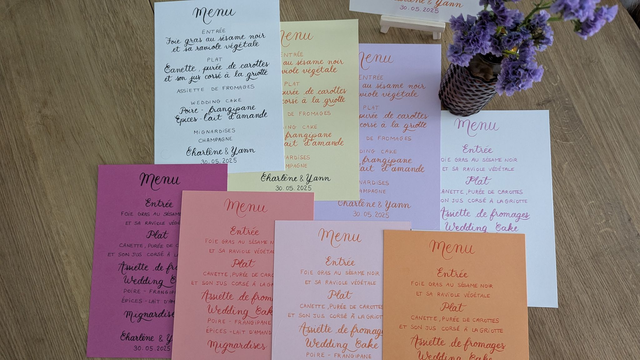 Charlène & Yann
30.05.2025
Menu
ENTRÉE
Foie gras au sésame noir
et sa raviole végétale
PLAT
Canette, purée de carottes
et son jus corsé à la griotte
ASSIETTE DE FROMAGES
WEDDING CAKE
Poire - frangipane
Épices lait d'amande
MIGNARDISES
CHAMPAGNE
Charlène & Yann
30.05.2025
Menu
ENTRÉE
sésame noir
végétale
PLAT
de carottes
à la griotte
DE FROMAGES
CAKE
frangipane
d'amande
Charlène & Yann
30.05.2025
Menu
ENTRÉE
sésame noir
végétale
PLAT
de carottes
à la griotte
DE FROMAGES
WEDDING CAKE
frangipane
lait d'amande
MIGNARDISES
CHAMPAGNE
Charlène & Yann
30.05.2025
Menu
Entrée
FOIE GRAS AU SÉSAME NOIR
ET SA RAVIOLE VÉGÉTALE
Plat
CANETTE, PURÉE DE CAROTTES
ET SON JUS CORSÉ À LA GRIOTTE
Assiette de fromages
Wedding Cake
Menu
Entrée
FOIE GRAS AU SÉSAME
ET SA RAVIOLE VÉGÉTALE
Plat
CANETTE, PURÉE DE
ET SON JUS CORSÉ À
Assiette de
Wedding
POIRE - FRANGIPANE
ÉPICES-LAIT D'AMANDE
Mignardises
Charlène &
30.05.2025
Menu
Entrée
FOIE GRAS AU SÉSAME N
ET SA RAVIOLE VÉGÉTALE
Plat
CANETTE, PURÉE DE CAR
ET SON JUS CORSÉ À LA
Assiette de from
Wedding Cake
POIRE - FRANGIPANE
ÉPICES-LAIT D'AMAND
Mignardises
Menu
Entrée
FOIE GRAS AU SÉSAME NOIR
ET SA RAVIOLE VÉGÉTALE
Plat
CANETTE, PURÉE DE CAROTTES
ET SON JUS CORSÉ À LA GRIOTTE
Assiette de fromag
Wedding Cake
POIRE - FRANGIPANE
Menu
Entrée
FOIE GRAS AU SÉSAME NOIR
ET SA RAVIOLE VÉGÉTALE
Plat
CANETTE, PURÉE DE CAROTTES
ET SON JUS CORSÉ À LA GRIOTTE
Assiette de fromages
Wedding Cake